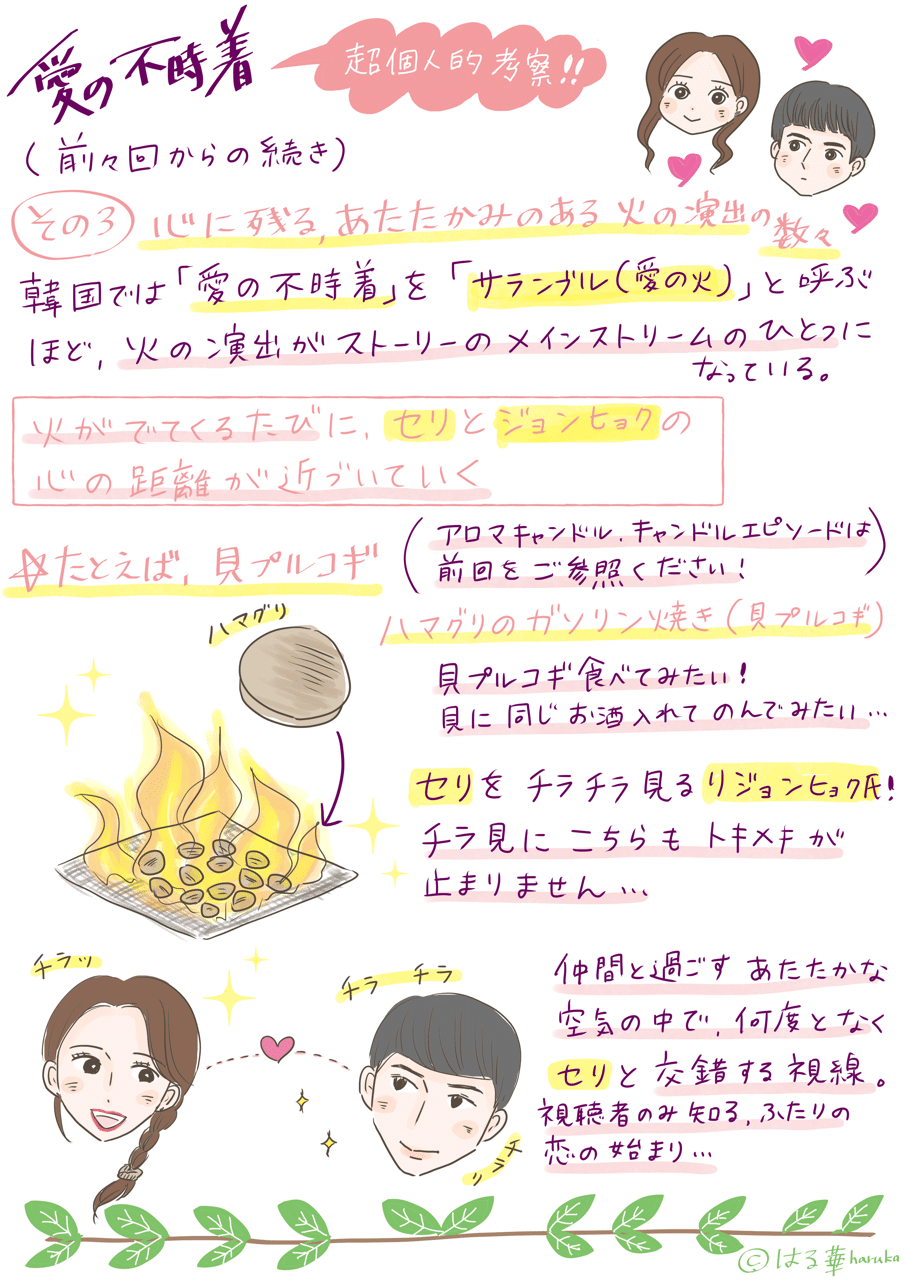 愛の不時着
超個人的考察!!
(前々回からの続き)
その3
心に残る,あたたかみのある火の演出の数々
韓国では「愛の不時着」を「サランブル(愛の火)」と呼ぶ
ほど,火の演出がストーリーのメインストリームのひとつに
なっている。
火がでてくるたびに,セリとジョンヒョクの
心の距離が近づいていく
☆たとえば,貝プルコギ
(アロマキャンドル.キャンドルエピソードは
前回をご参照ください!)
ハマグリ
ハマグリのガソリン焼き(貝プルコギ)
貝プルコギ食べてみたい!
貝に同じお酒入れてのんでみたい…
セリをチラチラ見るリジョンヒョク氏!
チラ見にこちらもトキメキが
止まりません…
チラッ
チラ チラ
チラッ
仲間と過ごすあたたかな
空気の中で,何度となく
セリと交錯する視線。
視聴者のみ知る,ふたりの
恋の始まり…
©はる華haruka